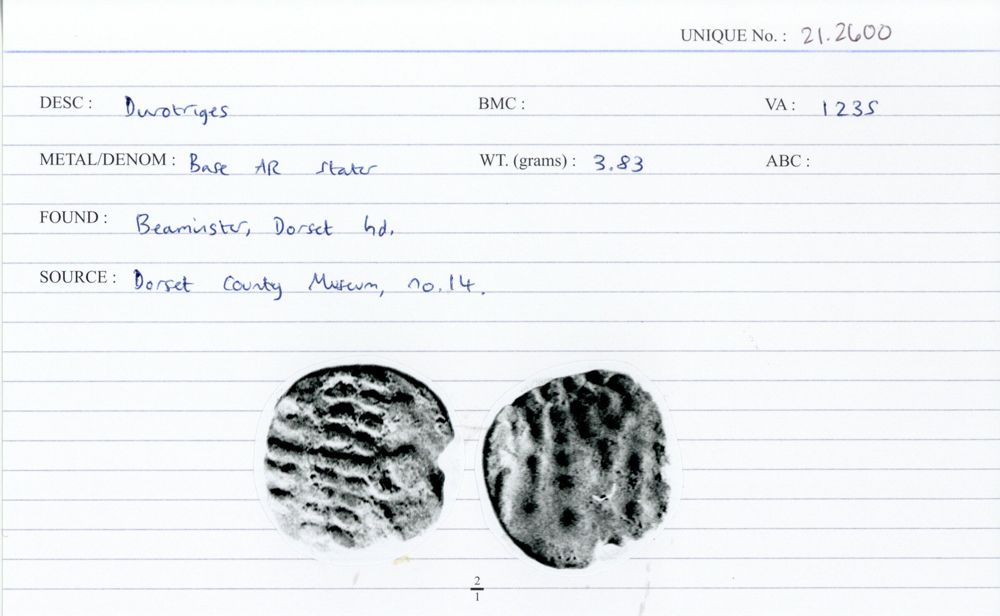 UNIQUE No. : 21.2600
DESC : Durotriges BMC : VA : 1235
METAL/DENOM : Base AR stater WT. (grams) : 3.83 ABC :
FOUND : Beaminster, Dorset hd.
SOURCE : Dorset County Museum, no.14.
2
1